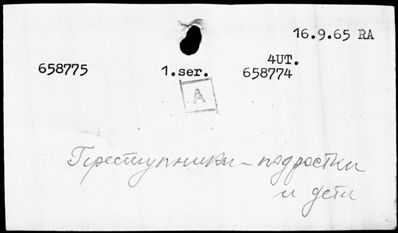 16.9.65 RA
4UT.
658775 1.ser. 658774
A
Преступники-подростки
и дети